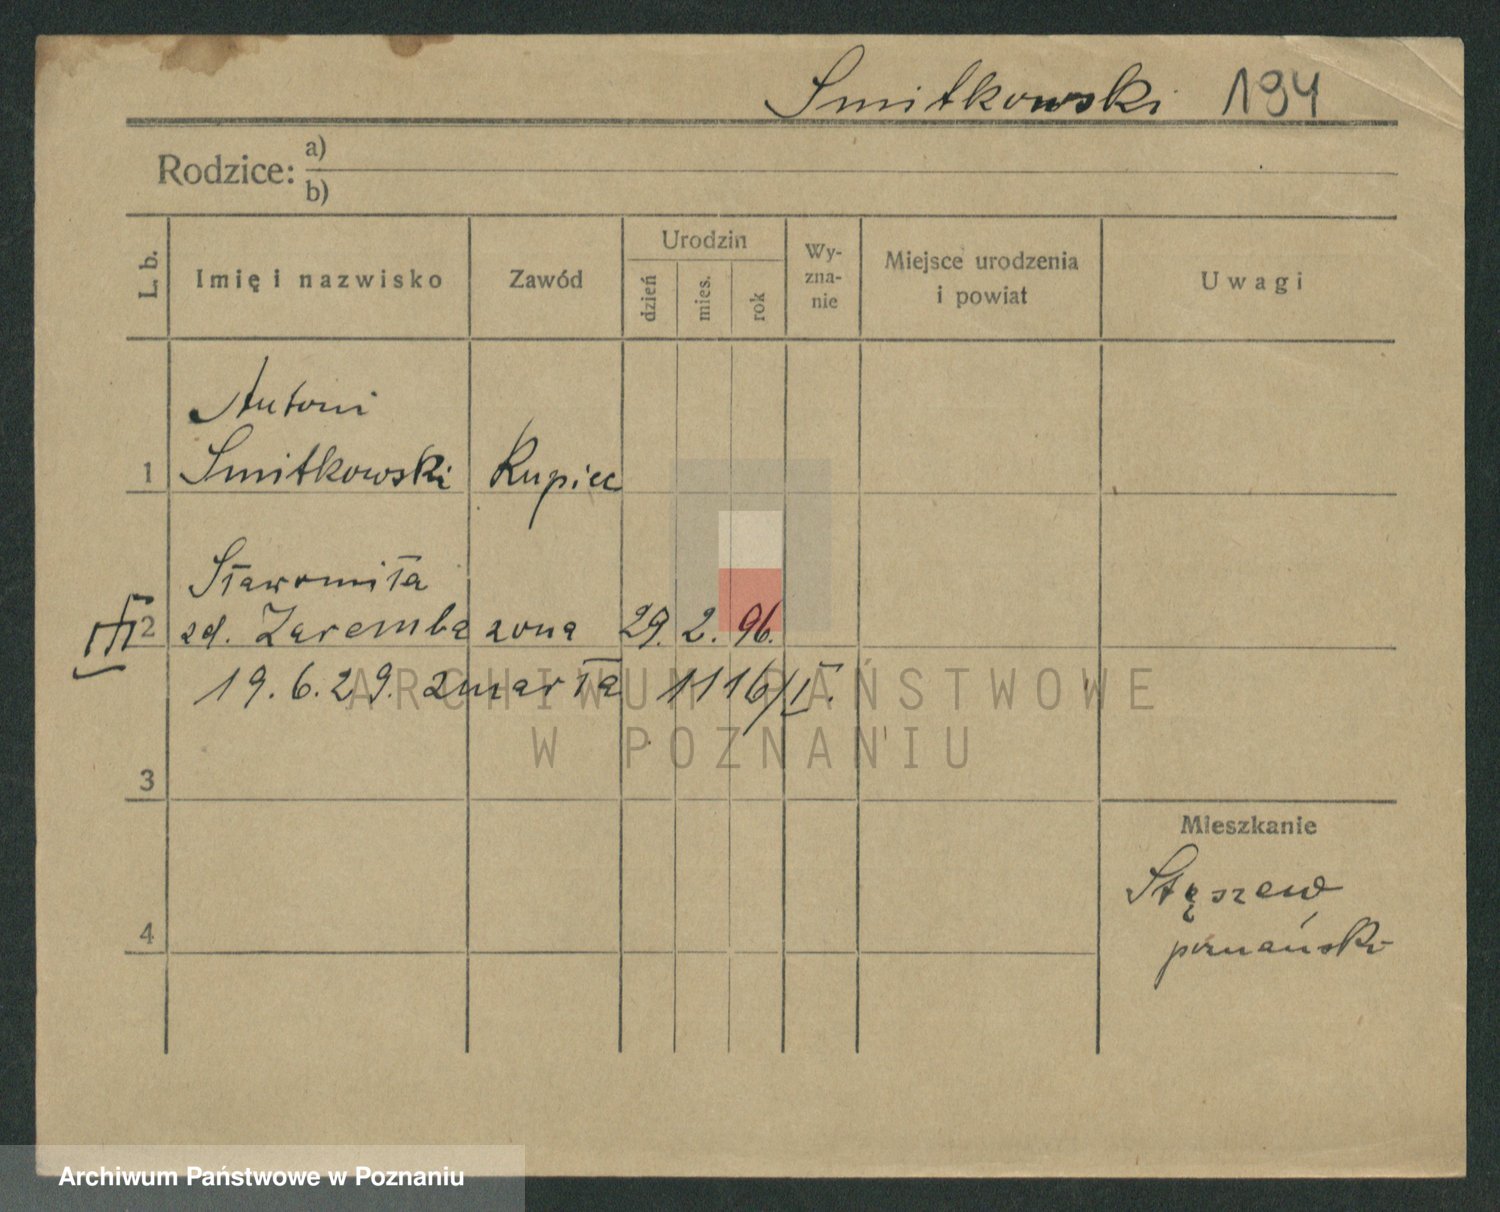 Smitkowski 194
Rodzice: a)
b)
L. b.
Imię i nazwisko
Zawód
Urodzin
dzień
mies.
rok
Wy-
zna-
nie
Miejsce urodzenia
i powiat
Uwagi
Antoni
1 Smitkowski Kupiec
Sławomiła
2 zd. Zaremba żona 29. 2. 96.
19. 6. 29. zmarła 1116/II.
3
4
Mieszkanie
Stęszew
poznański
ARCHIWUM PAŃSTWOWE
W POZNANIU
Archiwum Państwowe w Poznaniu